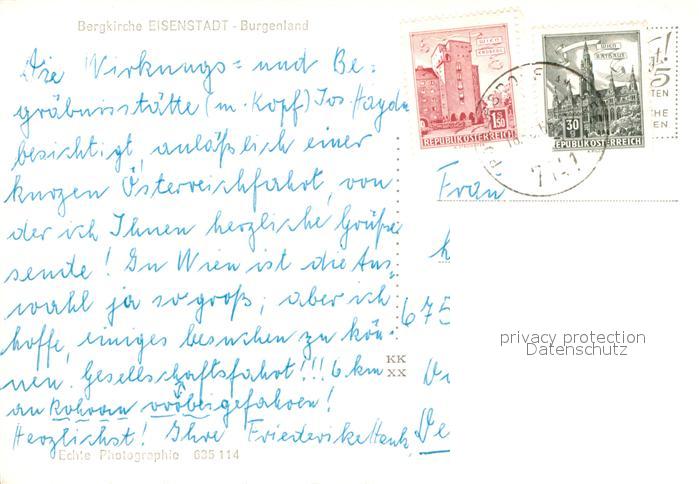 Bergkirche EISENSTADT - Burgenland
Die Wirkungs= und Be=
gräbnisstätte (m. Kopf) Jos. Haydn
besichtigt, anläßlich einer
kurzen Österreichfahrt, von
der ich Ihnen herzliche Grüße
sende! In Wien ist die Aus=
wahl ja so groß; aber ich
hoffe, einiges besuchen zu kön-
nen. Gesellschaftsfahrt!!! 6 km
an Rohrau vorbeigefahren!
Herzlichst! Ihre Friederike
Echte Photographie 635 114
KK
XX
WIEN
1.50
REPUBLIK ÖSTERREICH
WIEN
RATHAUS
30
REPUBLIK ÖSTERREICH
Frau
675
privacy protection
Datenschutz